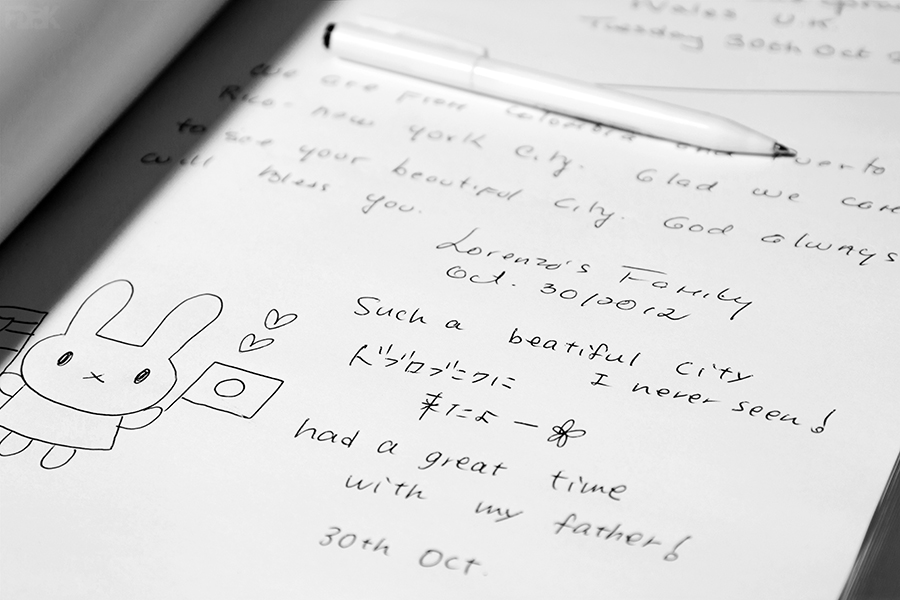 Wales U.K
Tuesday 30th Oct
We are from Colombia and uerto
Rico - new york City. Glad we came
to see your beautiful city. God always
will bless you.
Lorenzo's Family
Oct. 30/2012
Such a beatiful city
I never seen!
ドブロブニクに
来たよー
had a great time
with my father!
30th Oct.